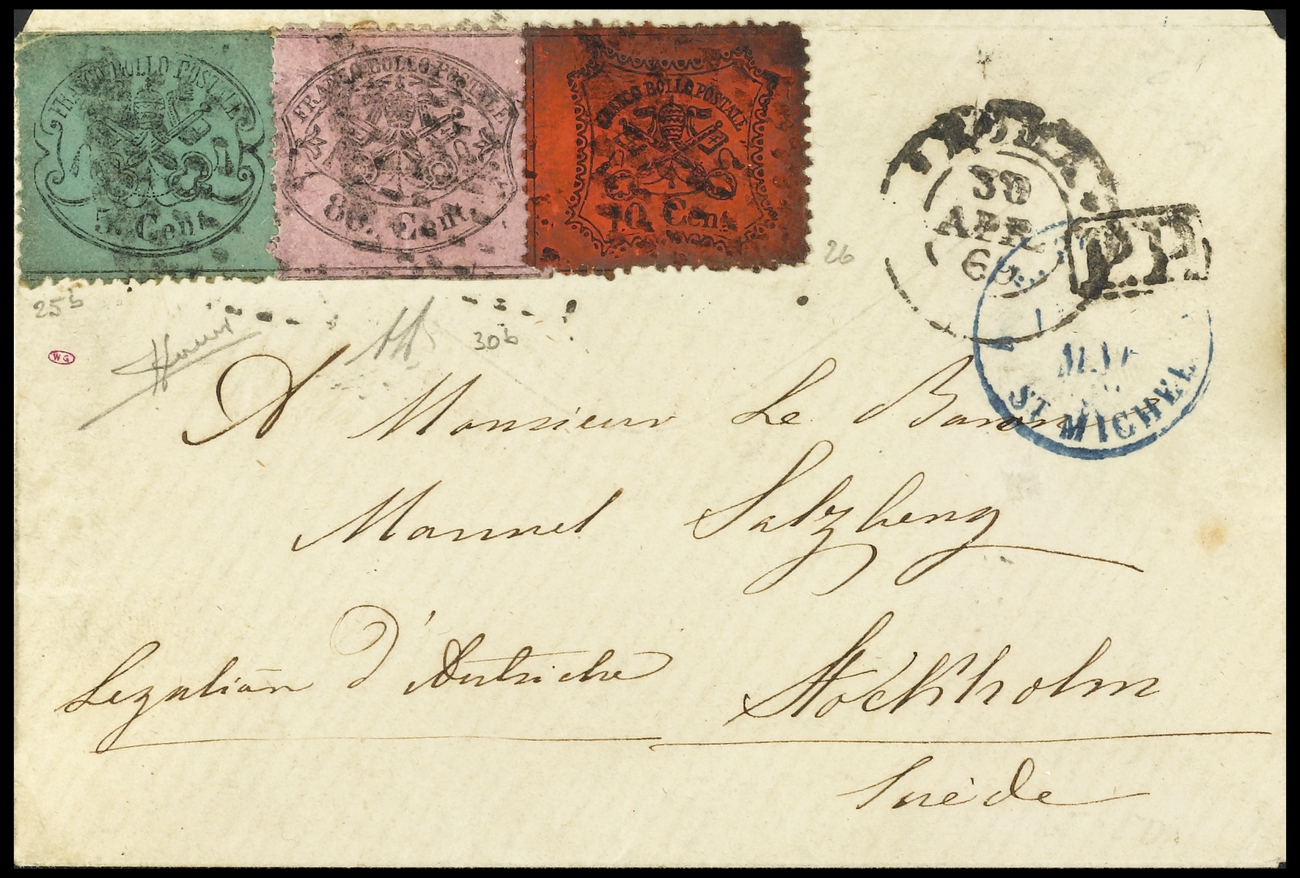 FRANCO BOLLO POSTALE
5. Cent.
FRANCO BOLLO POSTALE
80. Cent.
FRANCO BOLLO POSTALE
10. Cent.
30
APR
69
P.P.
25b
26
30b
WG
MAI
ST MICHEL
A Monsieur Le Baron
Salzberg
Legation d'Autriche
Stockholm
Suède